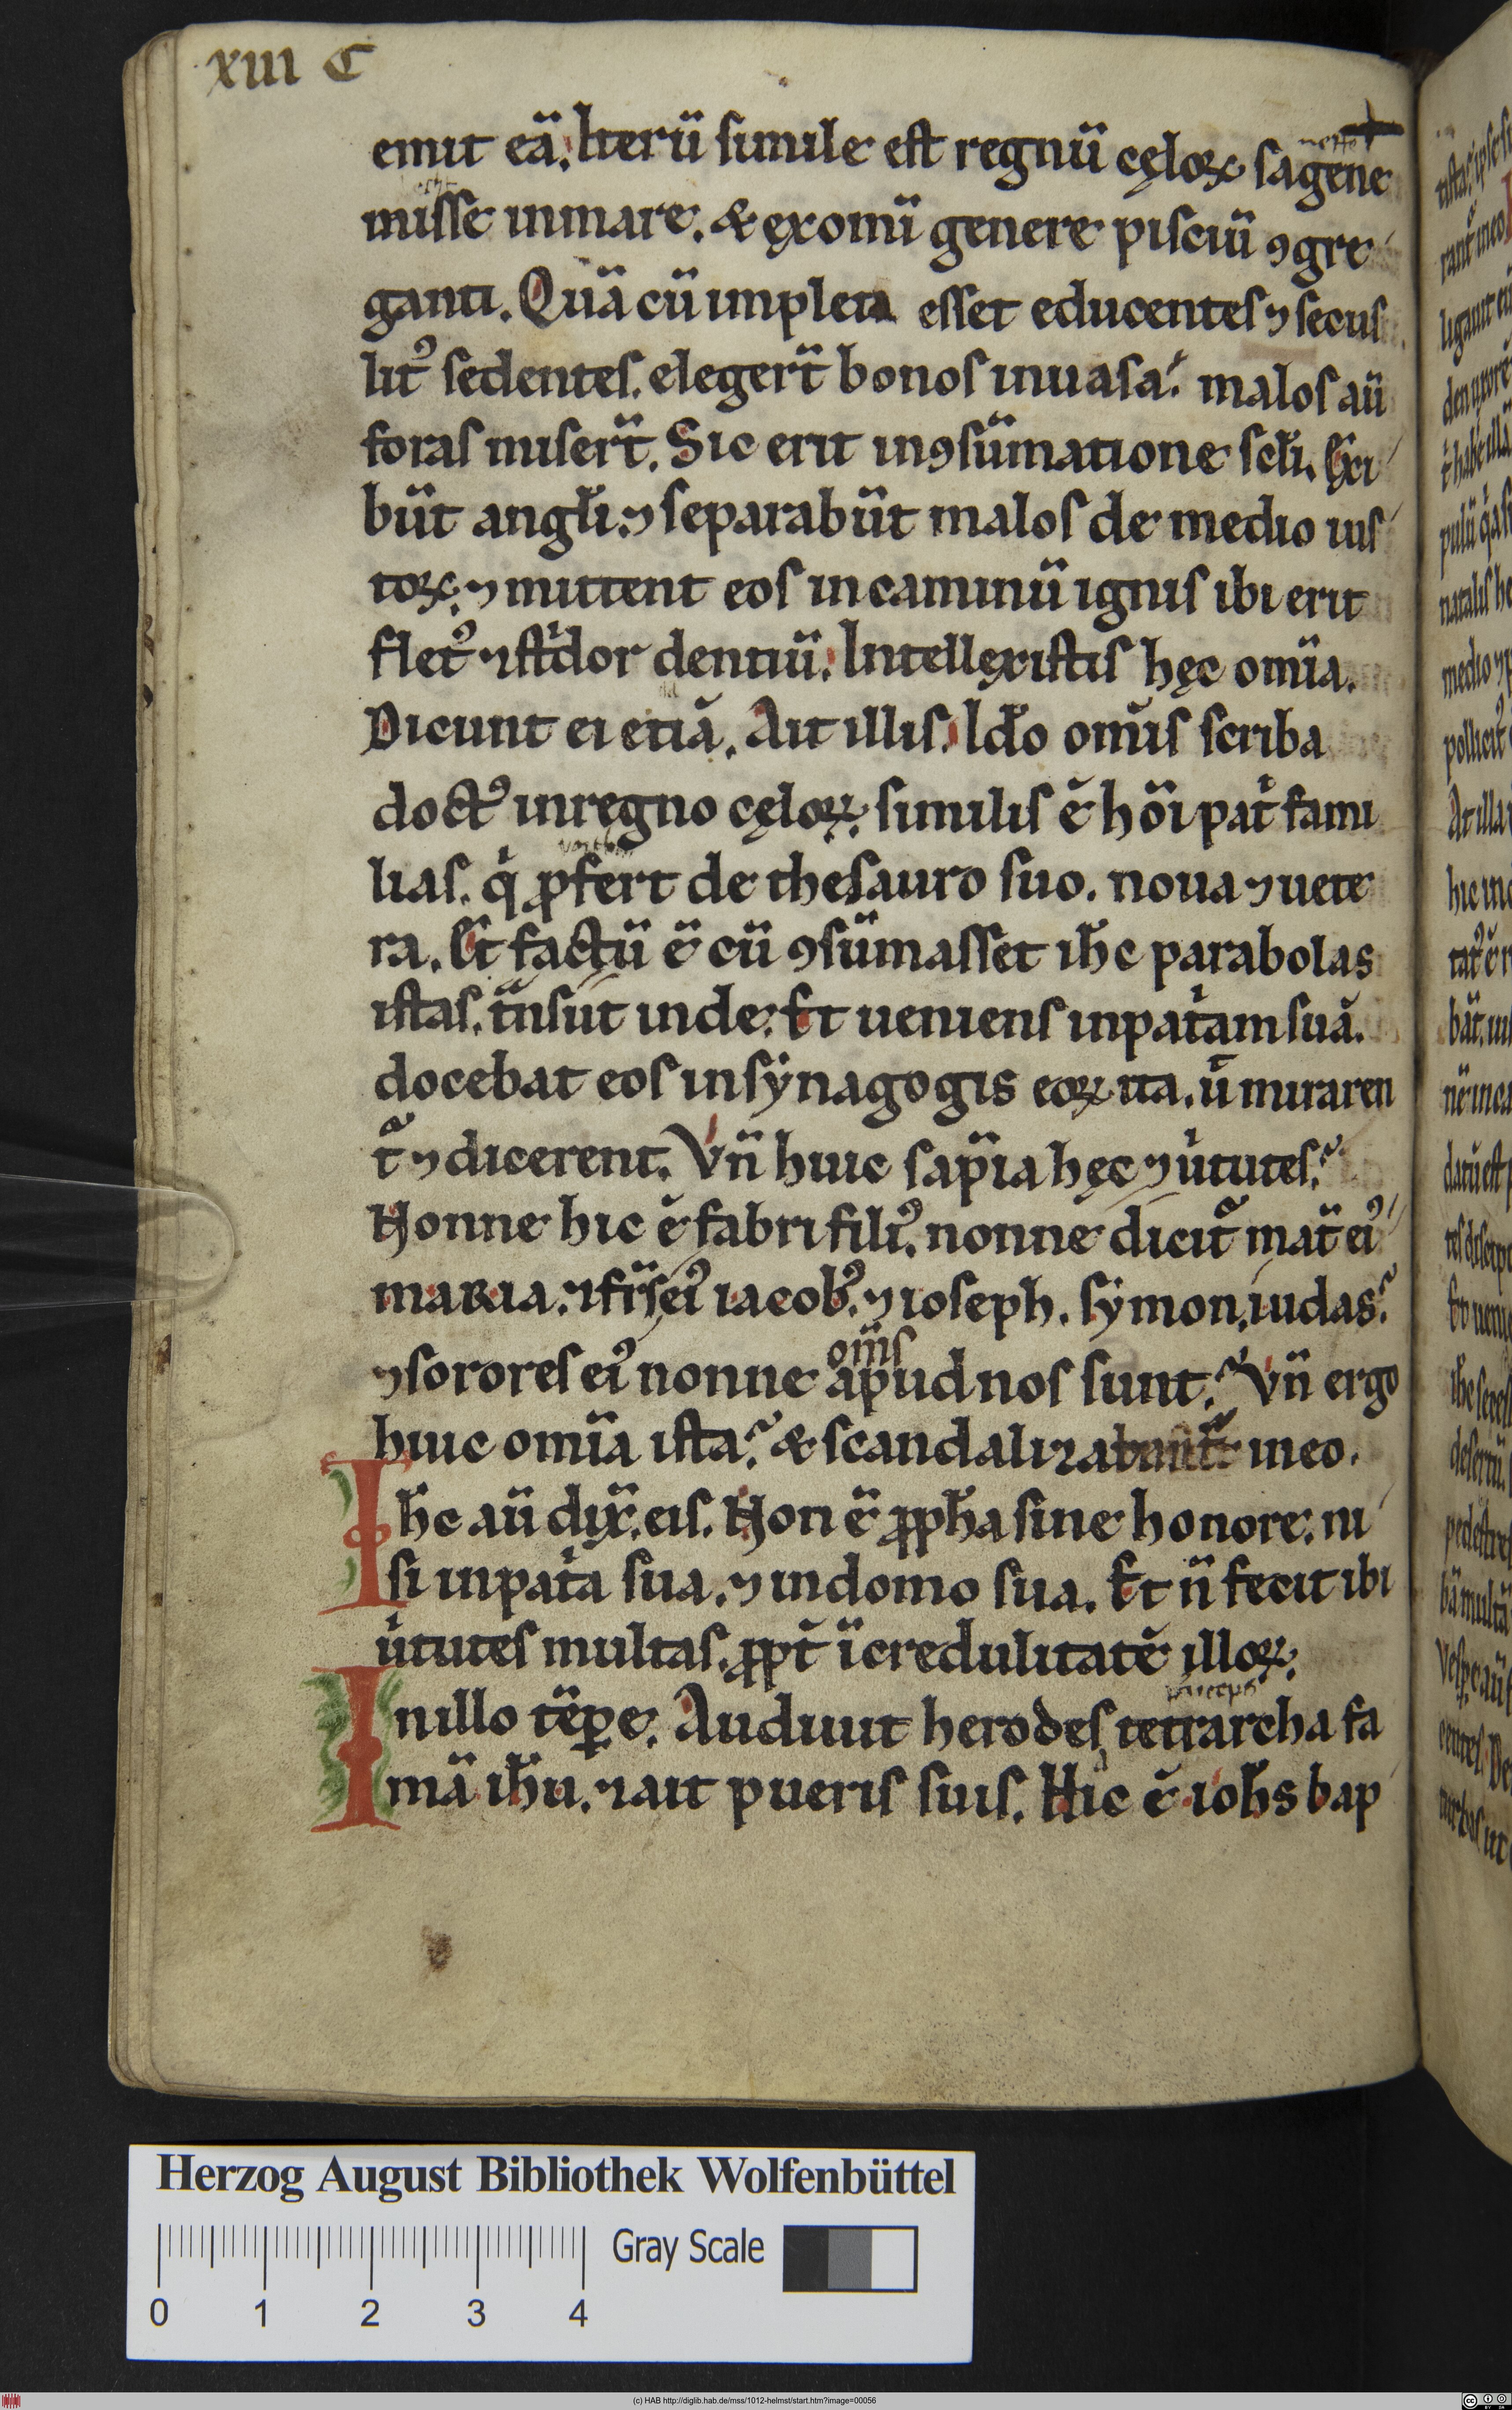 xııı C
emit eā. Iterū simile est regnū cęloꝝ sagene
misse inmare. & ęxomī genere pisciū ꝯgre
ganti. Quā cū impleta esset educentes ⁊ secus
litꝰ sedentes. elegerт̄ bonos inuasa. malos aū
foras miserт̄. Sic erit inꝯsūmatione scłi. Exi
būt angłi. ⁊ separabūt malos de medio ius
toꝝ. ⁊ mittent eos incaminū ignis ibi erit
fletꝰ ⁊ stͥdor dentiū. Intellęxistis hęc omīa.
Dicunt ei etiā. Ait illis. Iđo omīs scriba
doctꝰ inregno cęloꝝ. similis ē hōi patͥ fami
lias. qͥ ꝓfert de thesauro suo. noua ⁊ uete
ra. Et factū ē cū ꝯsūmasset ih̄c parabolas
istas. tͣnsiīt inde. Et ueniens inpatͥam suā.
docebat eos insÿnagogis eoꝝ ita. ūt miraren
tᷣ ⁊ dicerent. Vn̄ huic sap̄ia hęc ⁊ uͥtutes.
Nonne hic ē fabri filiꝰ. nonne dicitᷣ mat̄ eiꝰ
maria. ⁊ fr̄s eiꝰ iacobꝰ. ⁊ ioseph. sÿmon. iudas.
om̄s
⁊ sorores eiꝰ nonne apud nos sunt. Vn̄ ergo
huic omīa ista. & scandalizabantᷣ ineo.
Ih̄c aū dix̄. eis. Non ē ꝓph̄a sine honore. ni
si inpatͥa sua. ⁊ indomo sua. Et n̄ fecit ibi
uͥtutes multas. ꝓpt̄ īcredulitatē illoꝝ.
Inillo tēꝑe. Audiuit herodes tetrarcha fa
mā ih̄u. ⁊ ait pueris suis. Hic ē ioh̄s bap
Herzog August Bibliothek Wolfenbüttel
Gray Scale
0 1 2 3 4
(c) HAB http://diglib.hab.de/mss/1012-helmst/start.htm?image=00056